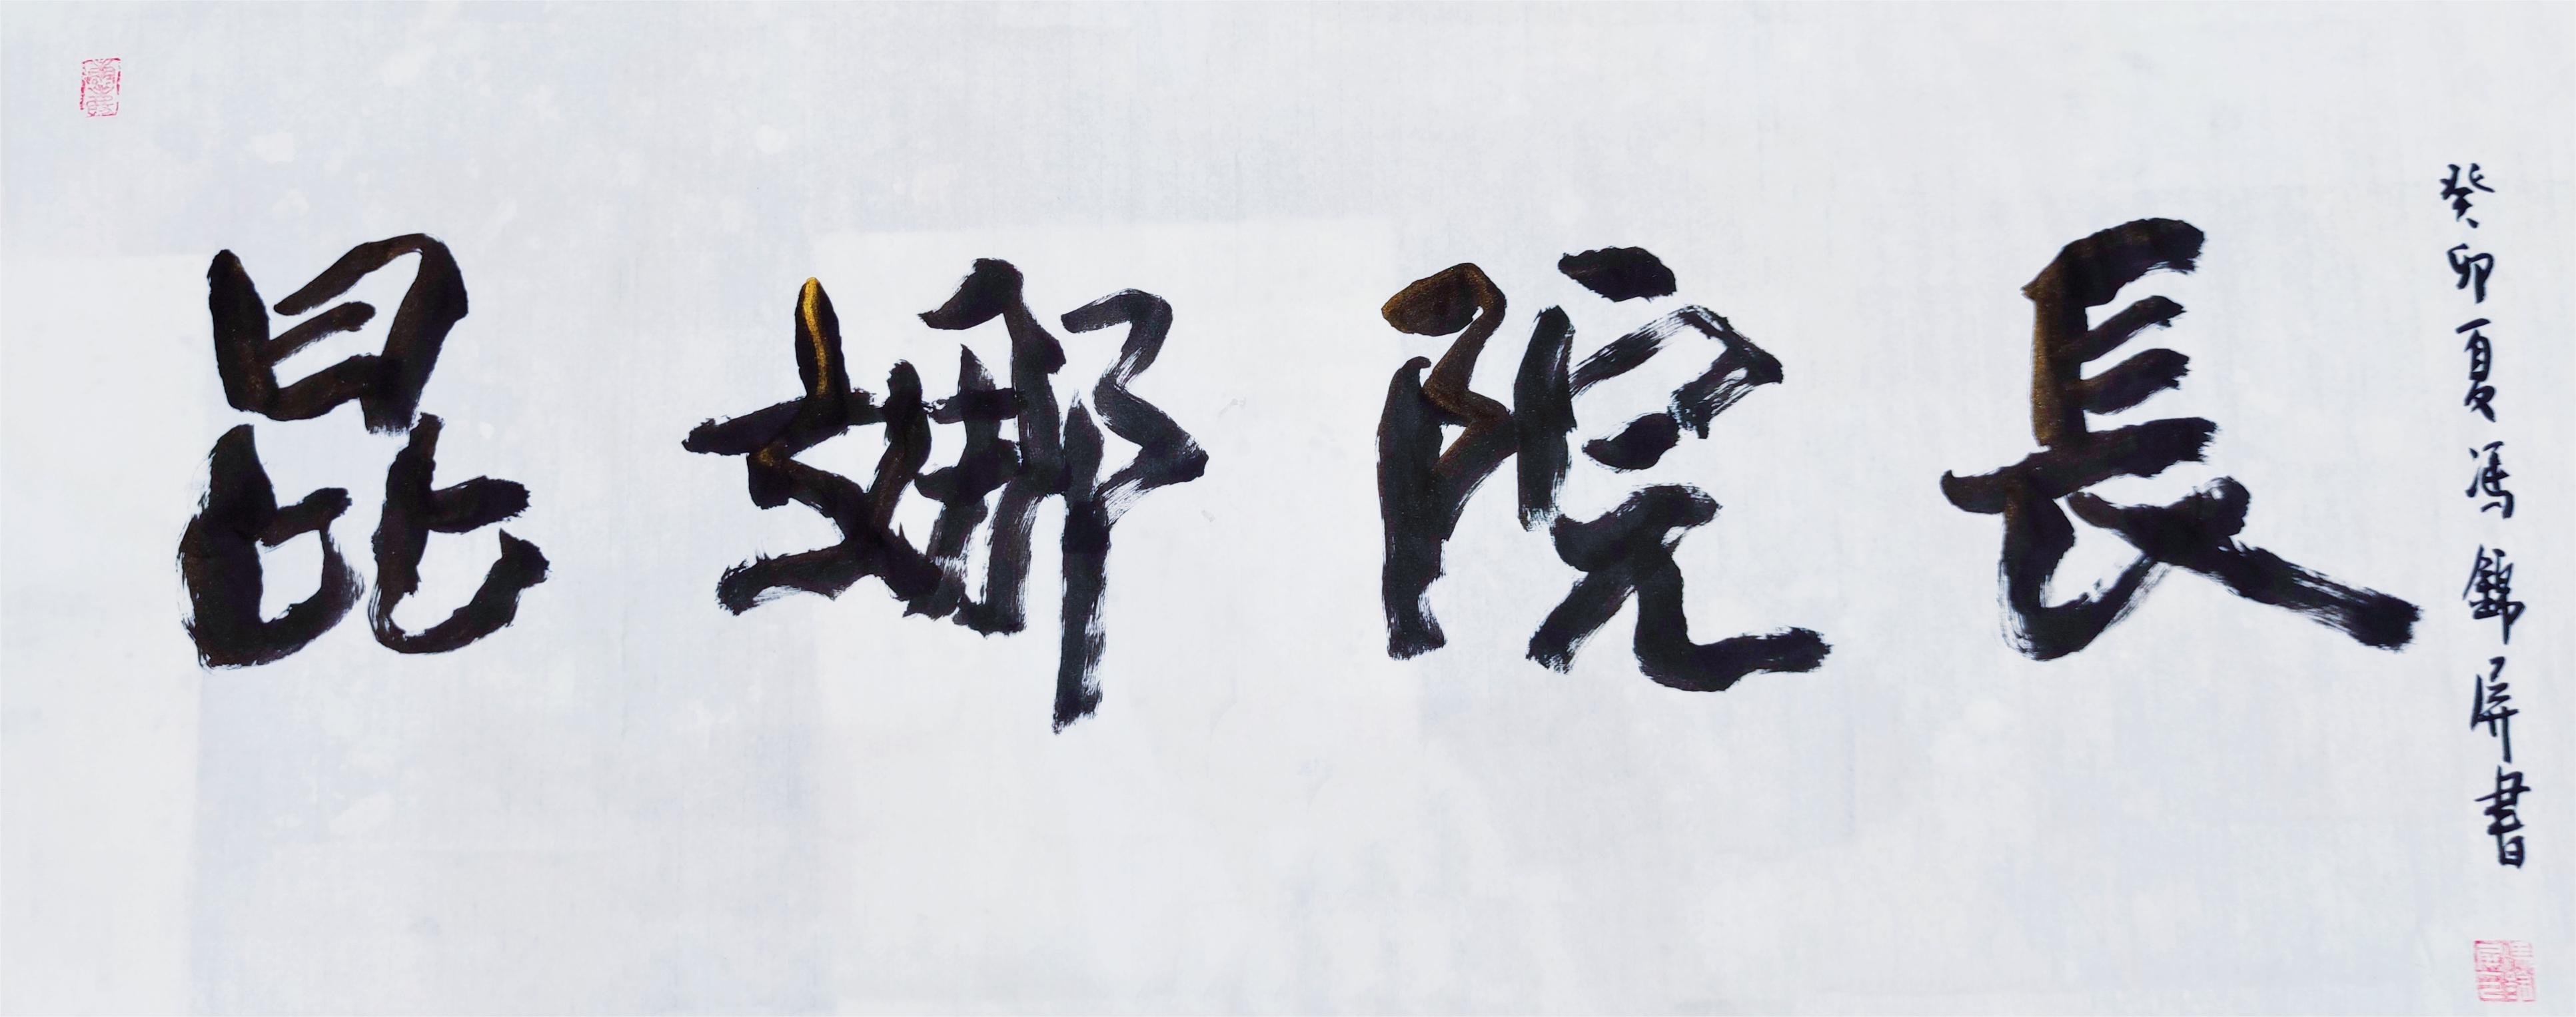 昆娜院長
癸卯夏馮錦屏書